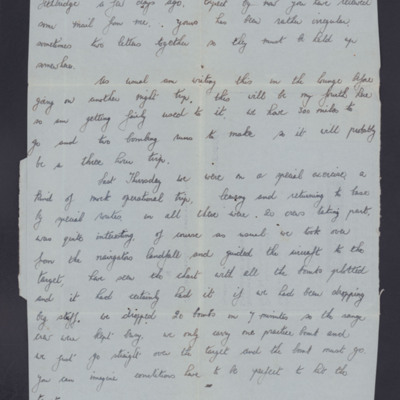 Lethbridge a few days ago. expect by now you have received
some mail from me. yours has been rather irregular
sometimes two letters together so they must be held up
somewhere.
As usual am writing this in the lounge before
going on another night trip. this will be my fourth here
so am getting fairly used to it. we have 300 miles to
go and two bombing runs to make so it will probably
be a three hour trip.
Last Thursday we were on a special exercise, a
kind of mock operational trip, leaving and returning to base
by special routes, in all there were 20 crews taking part,
was quite interesting. of course as usual we took over
from the navigators landfall and guided the aircraft to the
target, have seen the chart with all the bombs plotted
and it had certainly had it if we had been dropping
big stuff. we dropped 20 bombs in 7 minutes so the range
crew were kept busy. we only carry one practice bomb and
we just go straight over the target and the bomb must go.
you can imagine conditions have to be perfect to hit the